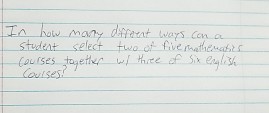 In how many different ways can a
student select two of five mathematics
courses together w/ three of six english
courses?